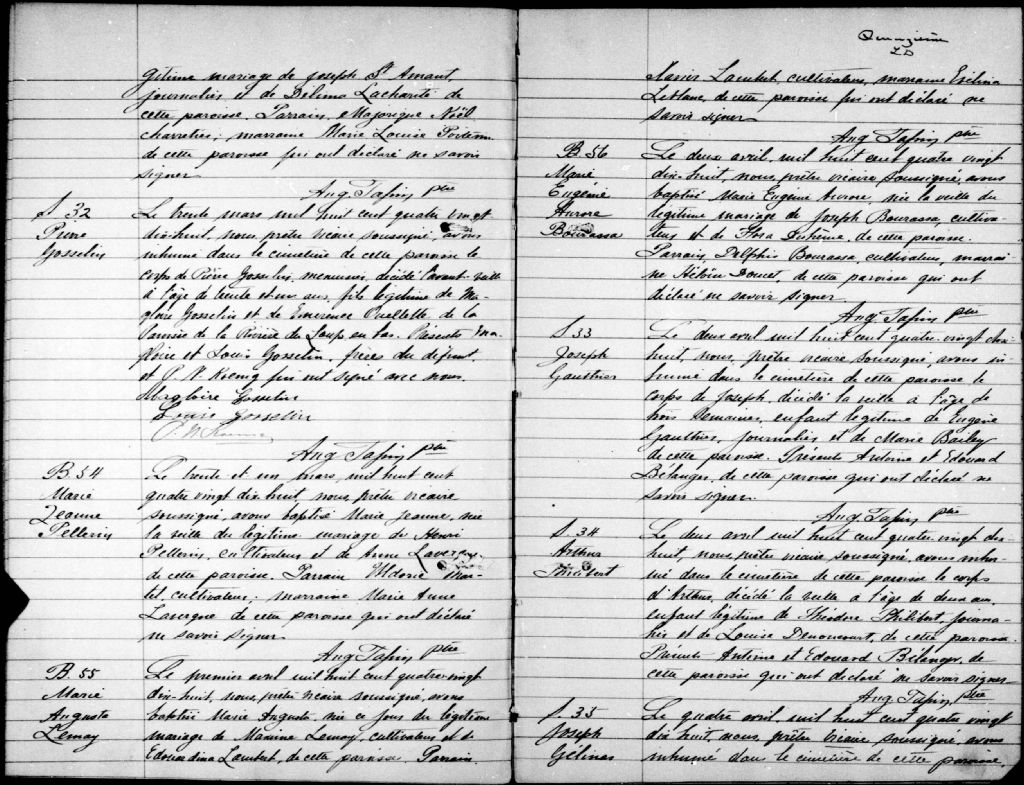 gitime mariage de Joseph St Amant,
journalier et de Délima Lacharité de
cette paroisse. Parrain, Majorique Noël
charretier; marraine Marie Louise
de cette paroisse qui ont déclaré ne savoir
signer
Aug Tapin ptre
S. 32
Pierre
Gosselin
Le trente mars mil huit cent quatre vingt
dix-huit, nous, prêtre vicaire soussigné, avons
inhumé dans le cimetière de cette paroisse le
corps de Pierre Gosselin, menuisier, décédé l'avant-veille
à l'âge de trente et un ans, fils légitime de Ma-
gloire Gosselin et de Emérence Ouellette de la
Paroisse de la Rivière du Loup en bas. Présents Ma-
gloire et Louis Gosselin, frères du défunt,
et P. N. Koenig qui ont signé avec nous.
Magloire Gosselin
Louis Gosselin
Aug Tapin ptre
B. 54
Marie
Jeanne
Pellerin
Le trente et un mars, mil huit cent
quatre vingt dix-huit, nous, prêtre vicaire
soussigné, avons baptisé Marie Jeanne, née
la veille du légitime mariage de Henri
Pellerin, cultivateur et de Anna Lavergne
de cette paroisse. Parrain
cultivateur; marraine Marie Anne
Lavergne de cette paroisse qui ont déclaré
ne savoir signer
Aug Tapin ptre
B. 55
Marie
Augusta
Lemay
Le premier avril mil huit cent quatre-vingt
dix-huit, nous, prêtre vicaire soussigné, avons
baptisé Marie Augusta, née ce jour du légitime
mariage de Lemay, cultivateur et de
Edouardina Lambert, de cette paroisse Parrain
Quinzième
Xavier Lambert cultivateur, marraine Exélina
Leblanc, de cette paroisse qui ont déclaré ne
savoir signer
Aug Tapin ptre
B. 56
Marie
Eugénie
Aurore
Bourassa
Le deux avril, mil huit cent quatre vingt
dix-huit, nous, prêtre vicaire soussigné, avons
baptisé Marie Eugénie Aurore, née la veille du
légitime mariage de Joseph Bourassa, cultiva-
teur et de Flora de cette paroisse.
Parrain, Delphis Bourassa, cultivateur, marrai-
ne Doucet, de cette paroisse qui ont
déclaré ne savoir signer
Aug Tapin ptre
S. 33
Joseph
Gauthier
Le deux avril mil huit cent quatre-vingt dix-
huit, nous, prêtre vicaire soussigné, avons in-
humé dans le cimetière de cette paroisse le
corps de Joseph, décédé la veille à l'âge de
trois semaines, enfant légitime de Eugène
Gauthier, journalier et de Marie Bailey
de cette paroisse. Présents Antoine et Edouard
Bélanger, de cette paroisse qui ont déclaré ne
savoir signer.
Aug Tapin ptre
S. 34
Arthur
Philibert
Le deux avril mil huit cent quatre-vingt dix-
huit, nous, prêtre vicaire soussigné, avons inhu-
mé dans le cimetière de cette paroisse le corps
d'Arthur, décédé la veille à l'âge de deux ans,
enfant légitime de Théodore Philibert, journa-
lier et de Louise Denoncourt, de cette paroisse.
Présents Antoine et Edouard Bélanger, de
cette paroisse qui ont déclaré ne savoir signer
Aug Tapin ptre
S. 35
Joseph
Gélinas
Le quatre avril, mil huit cent quatre vingt
dix huit, nous, prêtre vicaire soussigné, avons
inhumé dans le cimetière de cette paroisse,